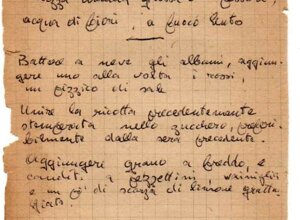 acqua di fiori, a fuoco lento
Battere a neve gli albumi, aggiun-
gere uno alla volta i rossi,
un pizzico di sale
Unire la ricotta precedentemente
stemperata nello zucchero, possi-
bilmente dalla sera precedente.
Aggiungere grano a freddo, e
canditi a pezzettini, vainiglia
e un po' di scorza di limone grattu-
giata.